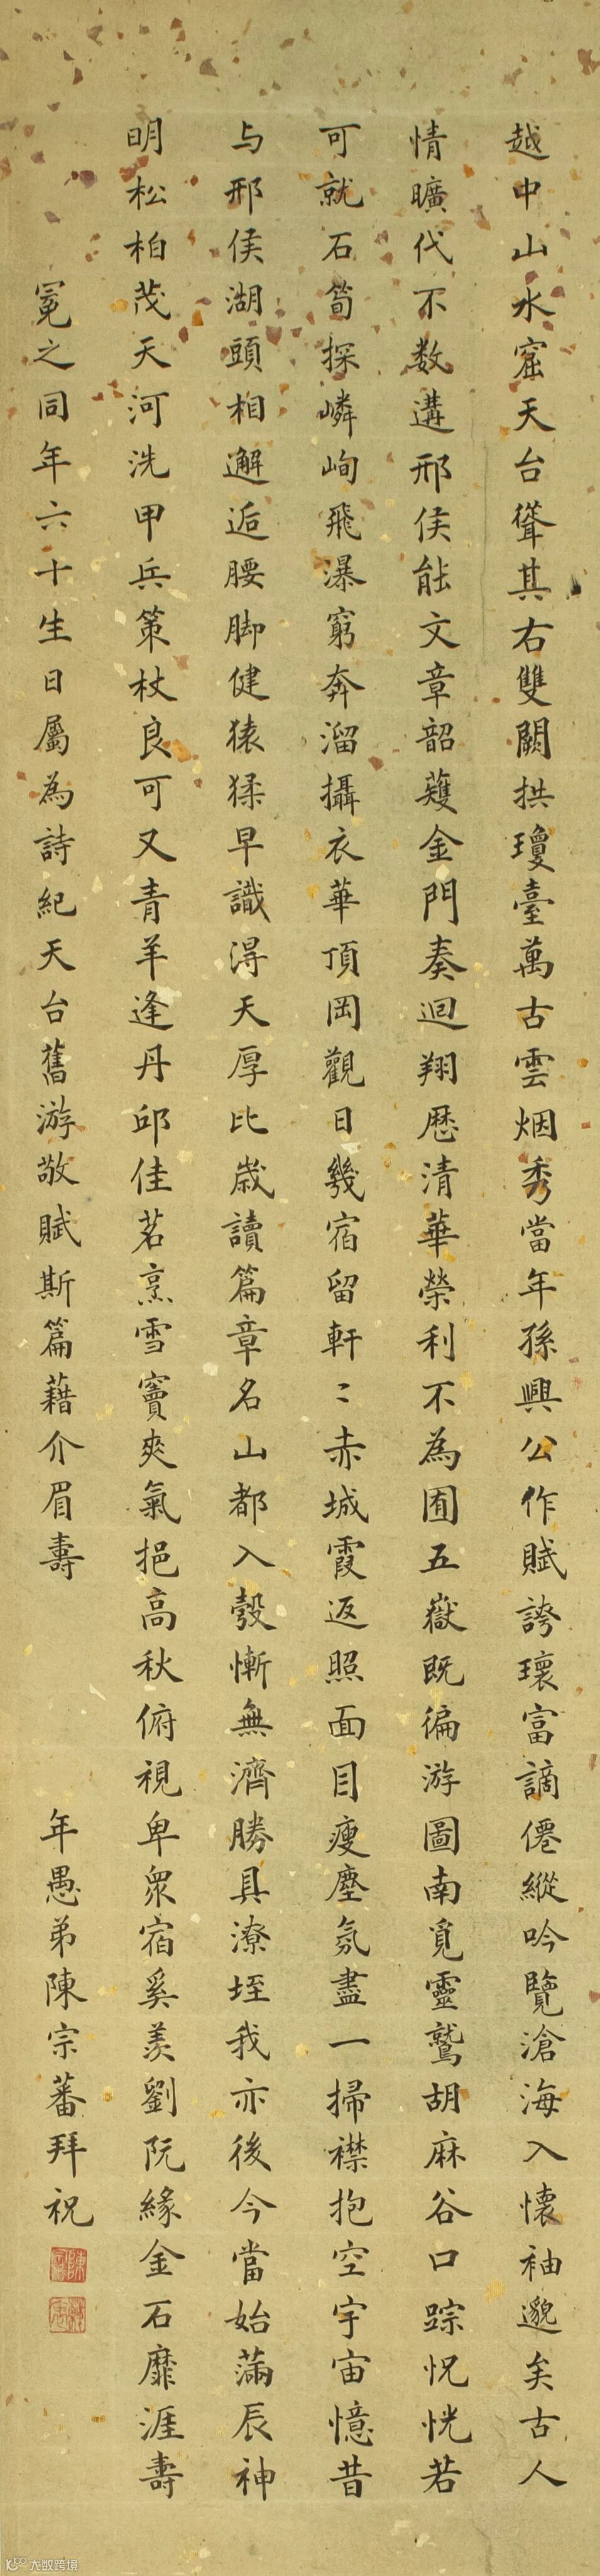 越中山水窟天台聳其右雙闕拱瓊臺萬古雲烟秀當年孫興公作賦誇瓌富謫僊縱吟覽滄海入懷袖邈矣古人
情曠代不数遘邢侯能文章韶頀金門奏迴翔歷清華榮利不為囿五嶽既徧游圖南覓靈鷲胡麻谷口踪怳恍若
可就石筍探嶙峋飛瀑窮奔溜攝衣華頂岡觀日幾宿留軒〻赤城霞返照面目瘦塵氛盡一掃襟抱空宇宙憶昔
与邢侯湖頭相邂逅腰脚健猿猱早識淂天厚比歲讀篇章名山都入彀慚無濟勝具潦垤我亦後今當始滿辰神
明松柏茂天河洗甲兵策杖良可又青羊逢丹邱佳茗烹雪竇爽氣挹高秋俯視卑衆宿奚羨劉阮緣金石靡涯壽
冕之同年六十生日屬為詩紀天台舊游敬賦斯篇藉介眉壽
年愚弟陳宗蕃拜祝
大数跨境